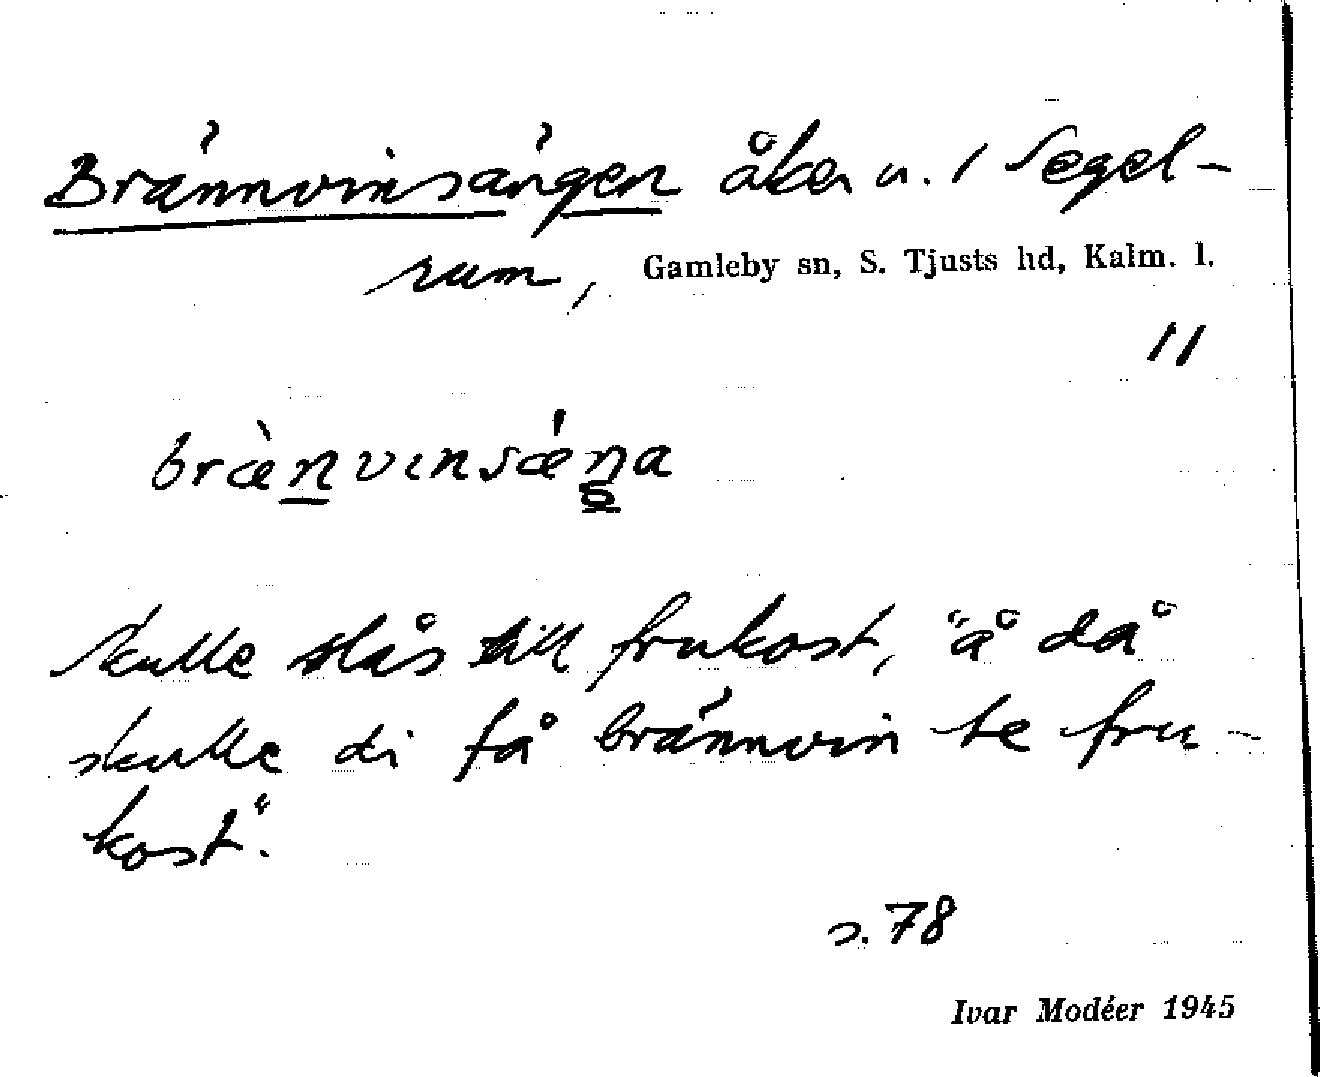 Brännvinsängen åker u. 1 Segel-
rum, Gamleby sn, S. Tjusts hd, Kalm. l.
11
brὰnvinsǽŋa
skulle slås till frukost, "å då
skulle di få brännvin te fru-
kost".
s. 78
Ivar Modéer 1945